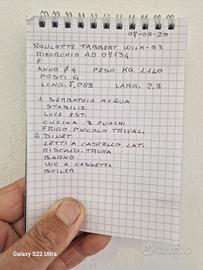 07-05-20
ROULOTTE TABBERT WILK-53
RIBERCHIO AD 09134
E
ANNO 84 PESO KG. 1.140
POSTI 4
LUNG. 8,063 LARG. 2,3
1 SERBATOIO ACQUA
STABILIZ.
LUCE EST.
CUCINA 3 FUOCHI
FRIGO PICCOLO TRIVAL.
2 DIVET.
LETTI A CASTELLO LAT.
RISCALD. TRUMA
BAGNO
WC A CASSETTA
BOILER
Galaxy S22 Ultra
subito